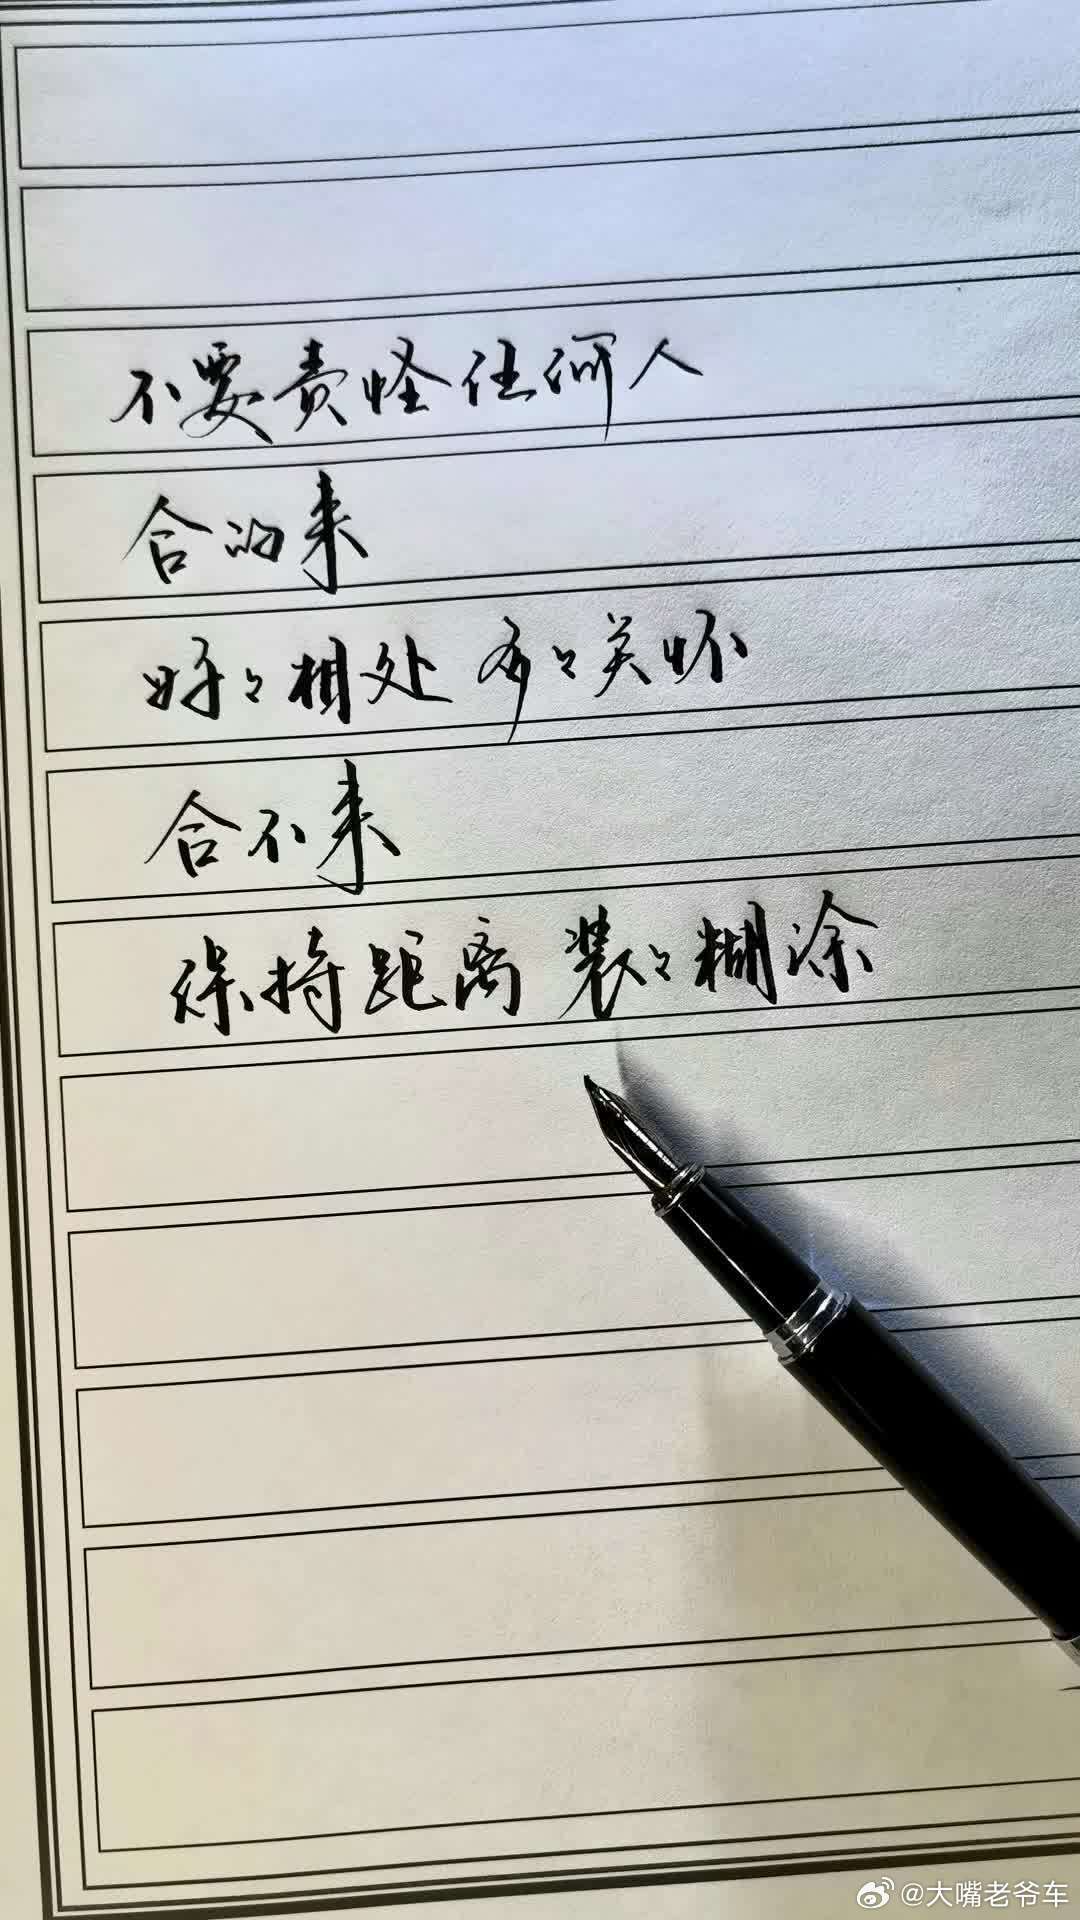 不要责怪任何人
合的来
好々相处 多々关怀
合不来
保持距离 装々糊涂
@大嘴老爷车